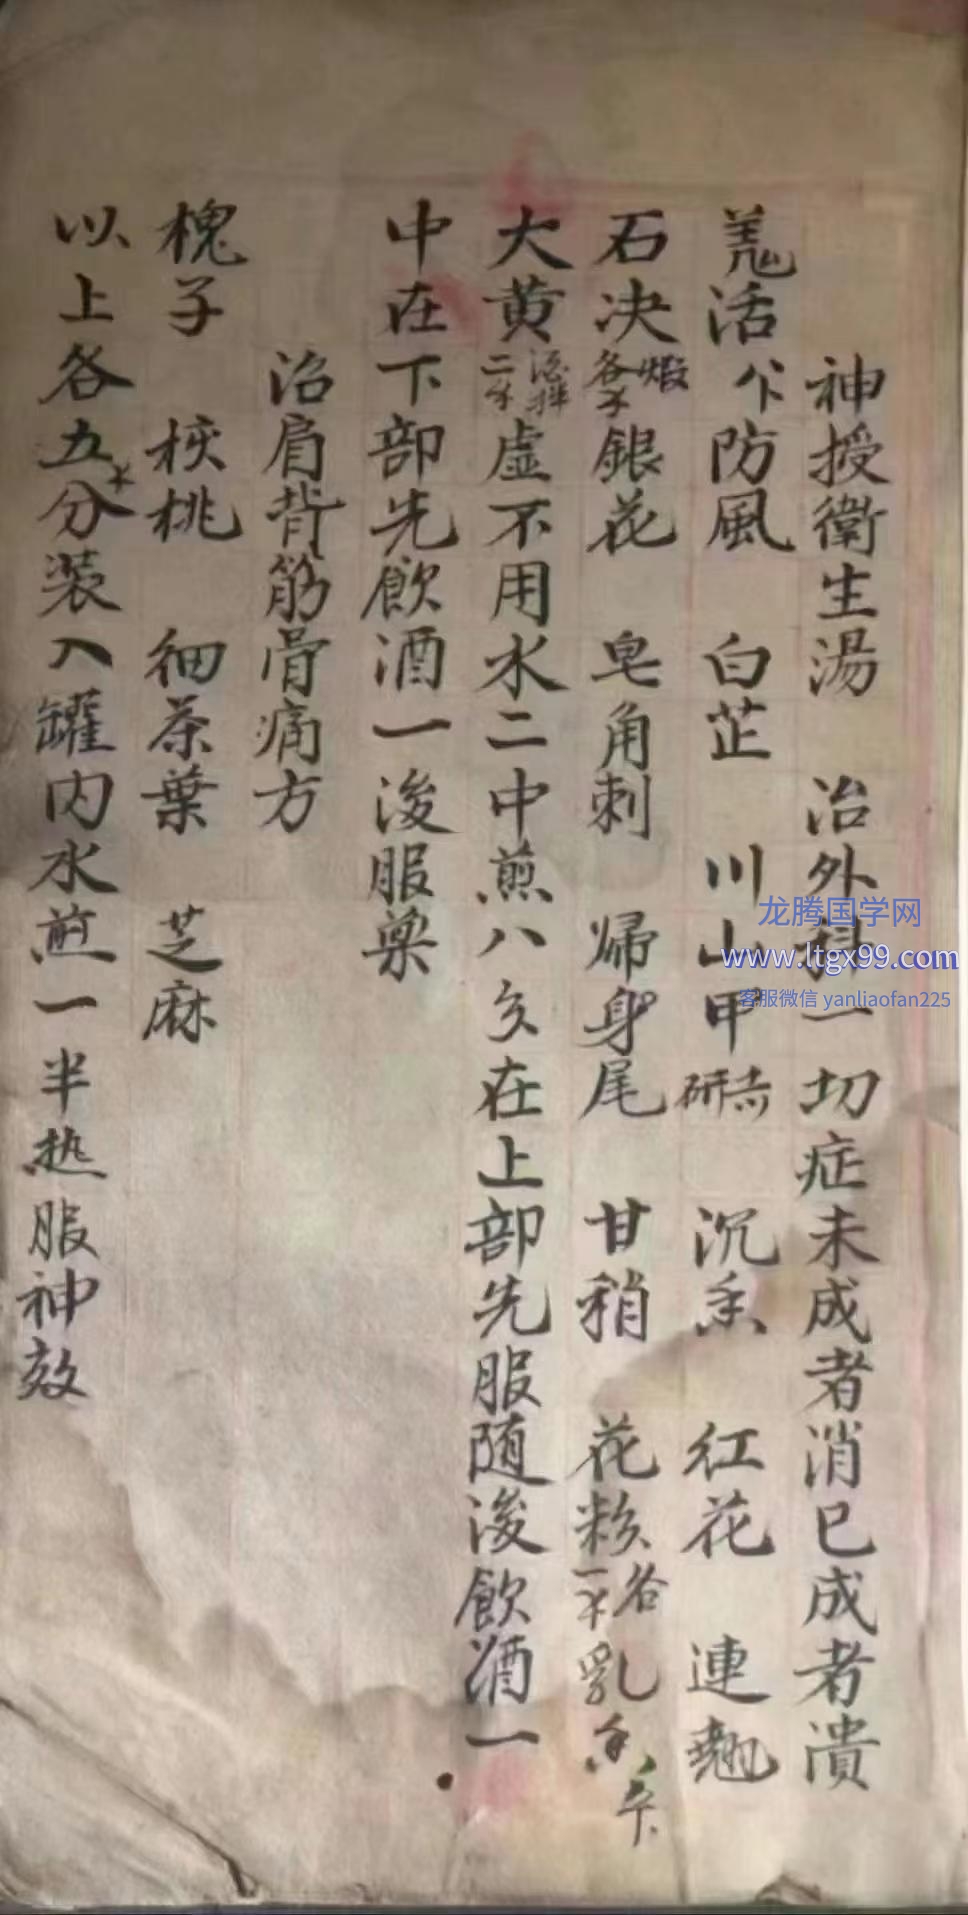 神授衛生湯 治外科一切症未成者消已成者潰
羗活 防風 白芷 川山甲 研 沉香 紅花 連翹
石决 煅各 銀花 皂角刺 帰身尾 甘稍 花粉 各一 乳香
大黄 酒拌二 虚不用水二中煎八分在上部先服随後飲酒一
中在下部先飲酒一後服藥
治肩背筋骨痛方
槐子 核桃 细茶葉 芝麻
以上各五分装入罐内水煎一半热服神效
龙腾国学网
www.ltgx99.com
客服微信 yanliaofan225